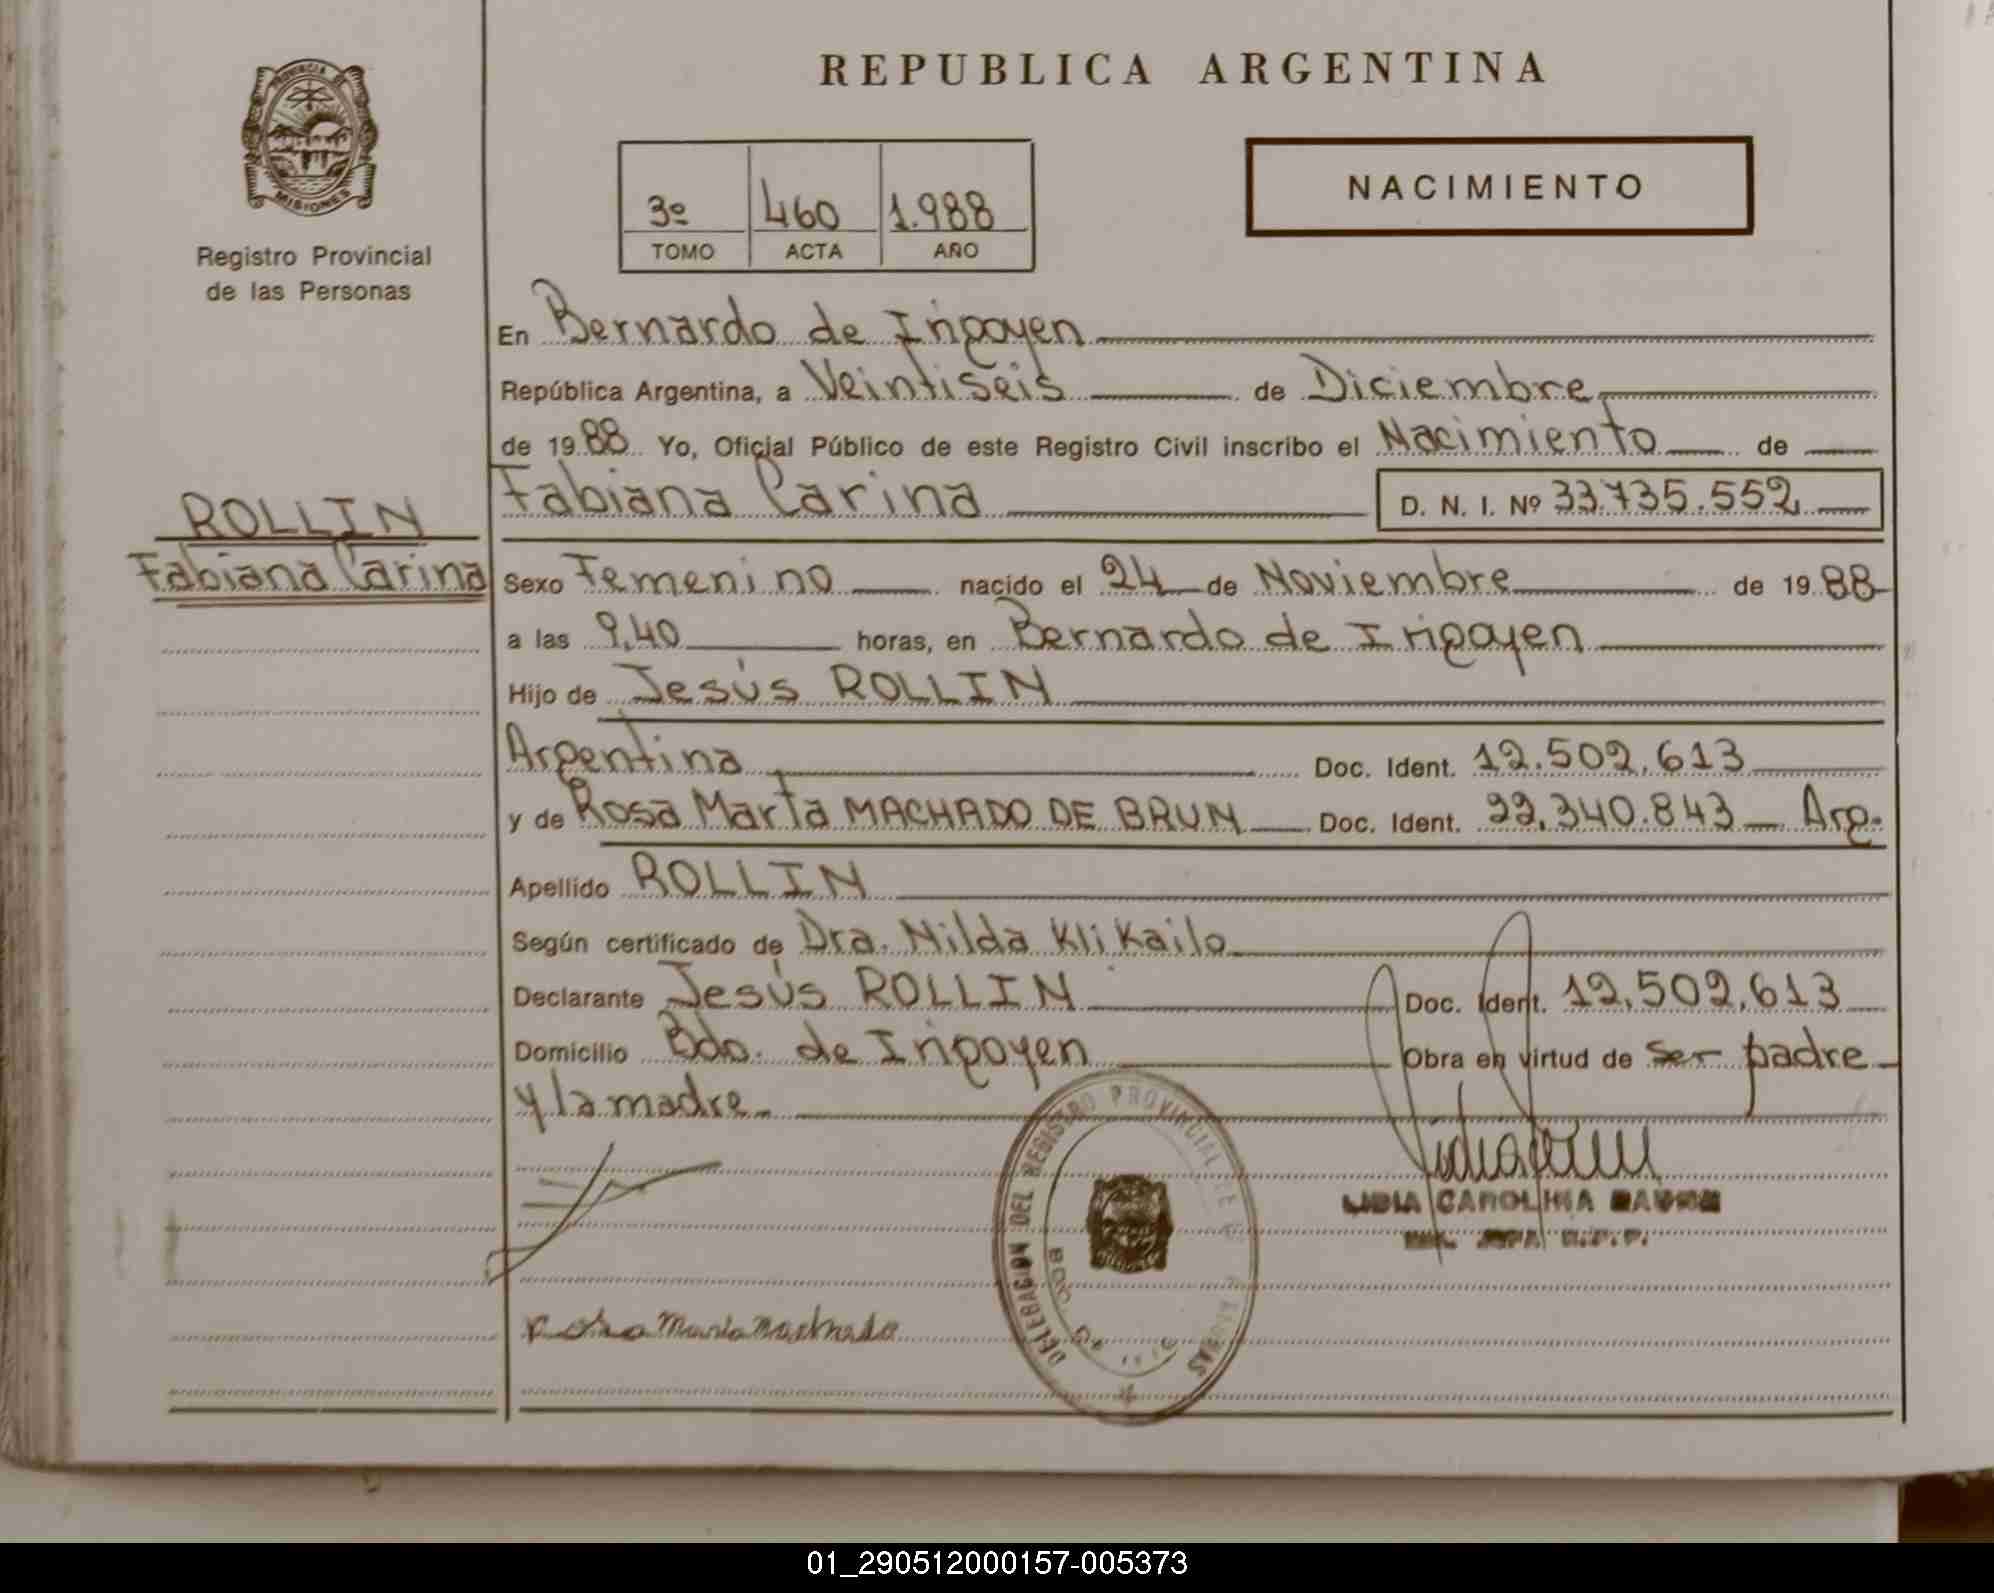 REPUBLICA ARGENTINA
PROVINCIA DE
MISIONES
Registro Provincial
de las Personas
NACIMIENTO
3º 460 1.988
TOMO ACTA AÑO
En Bernardo de Irigoyen
República Argentina, a Veintiseis de Diciembre
de 1988 Yo, Oficial Público de este Registro Civil inscribo el Nacimiento de
ROLLIN
Fabiana Carina
Fabiana Carina D. N. I. Nº 33.735.552
Sexo Femenino nacido el 24 de Noviembre de 1988
a las 9,40 horas, en Bernardo de Irigoyen
Hijo de Jesús ROLLIN
Argentina Doc. Ident. 12.502.613
y de Rosa Maria MACHADO DE BRUN Doc. Ident. 22.340.843 Arg.
Apellido ROLLIN
Según certificado de Dra. Nilda Klikailo
Declarante Jesús ROLLIN Doc. Ident. 12.502.613
Domicilio Bdo. de Irigoyen Obra en virtud de ser padre
y la madre
DELEGACION DEL REGISTRO PROVINCIAL DE
LIDIA CAROLINA
Rosa Maria Machado
01_290512000157-005373